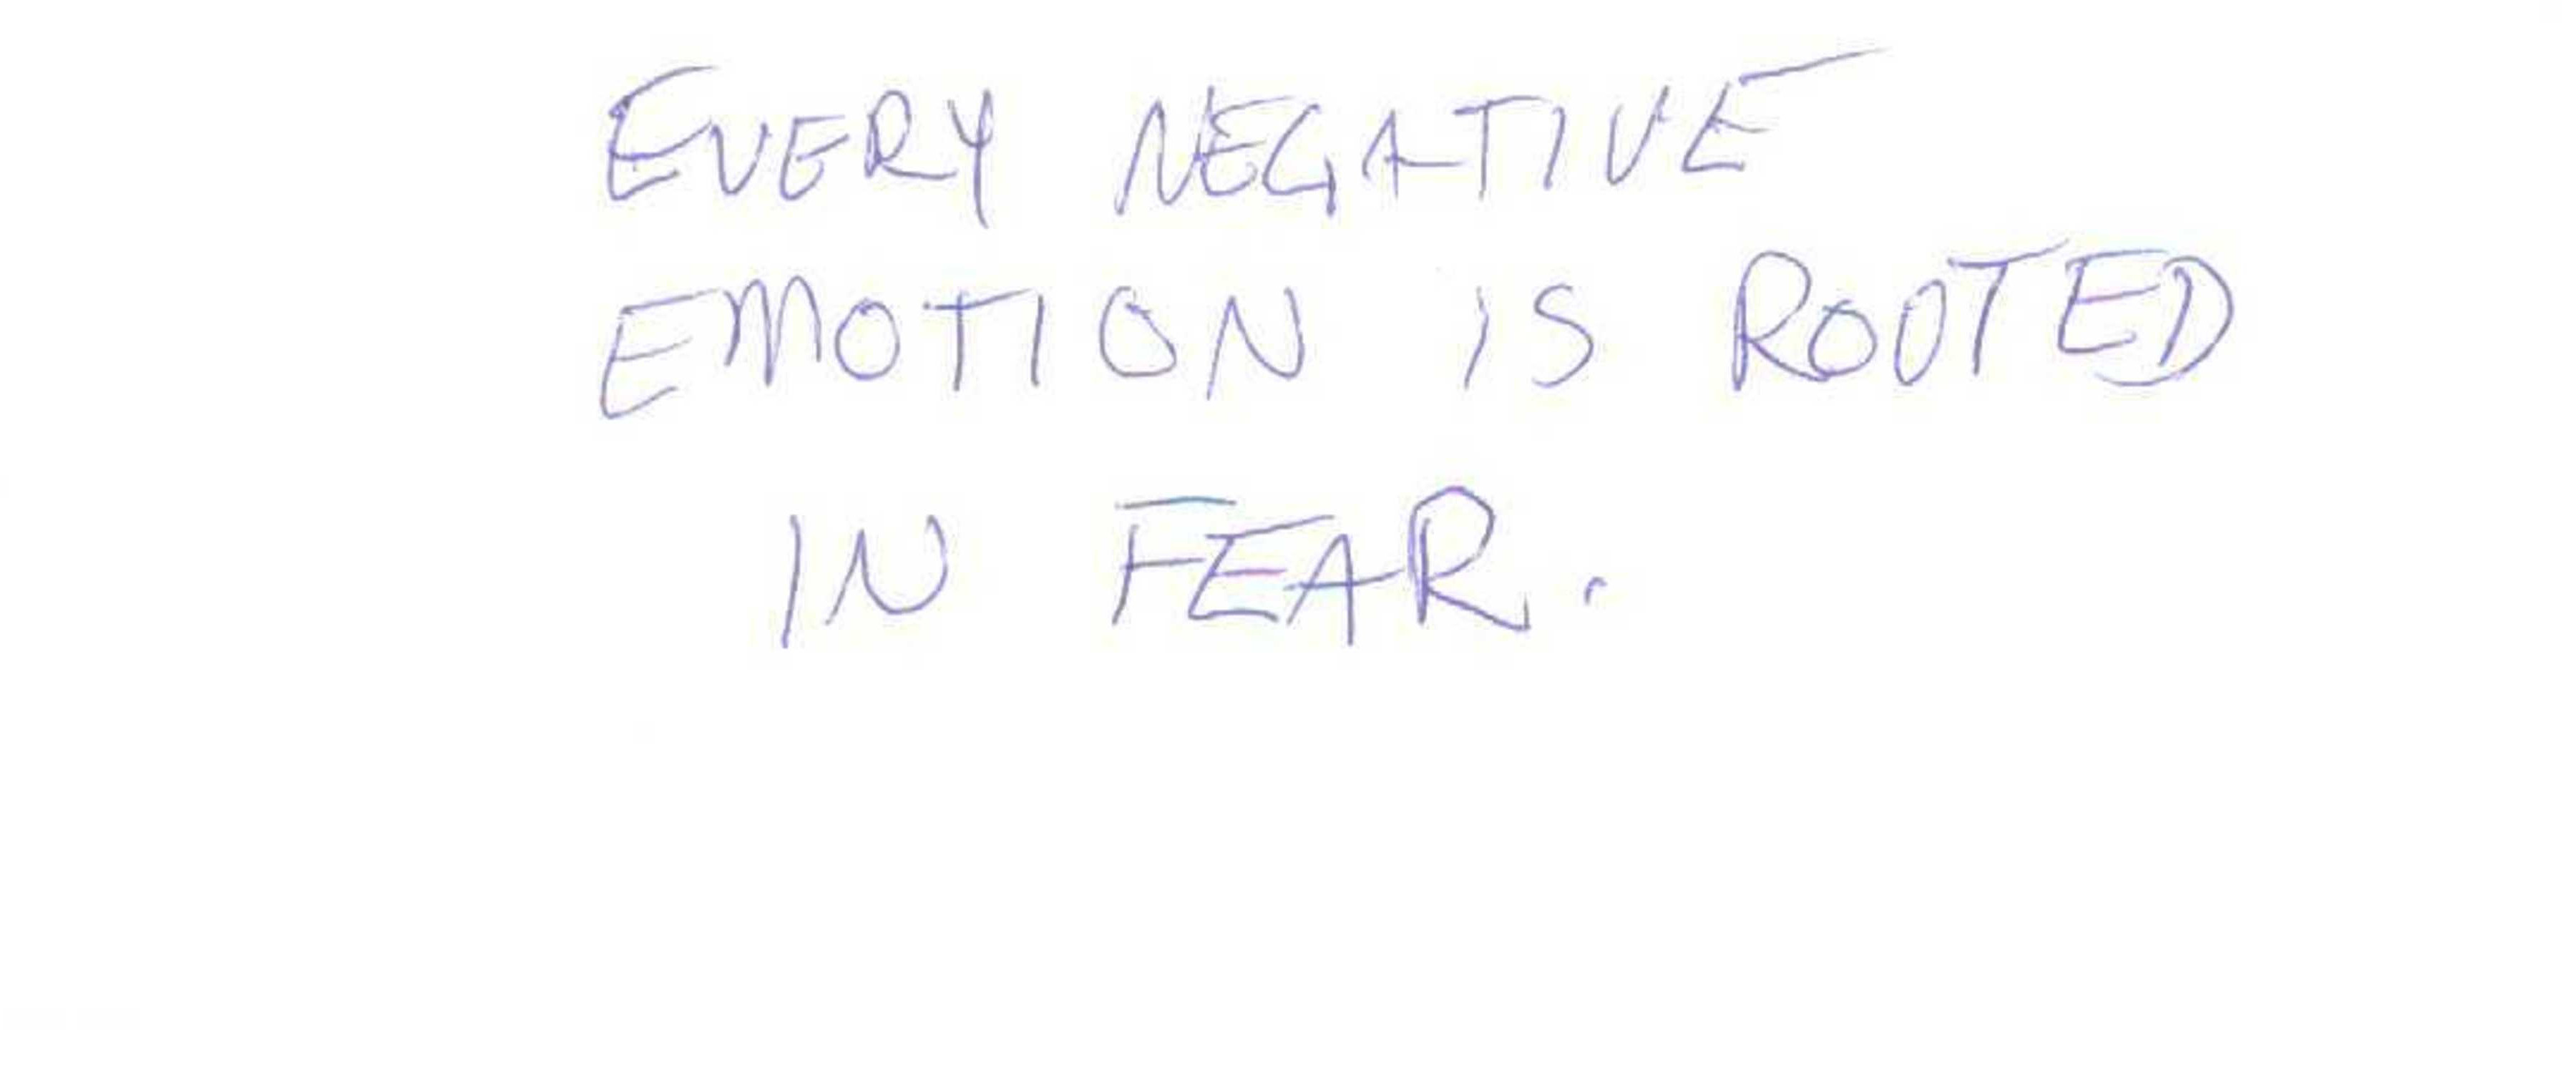 EVERY NEGATIVE
EMOTION IS ROOTED
IN FEAR.